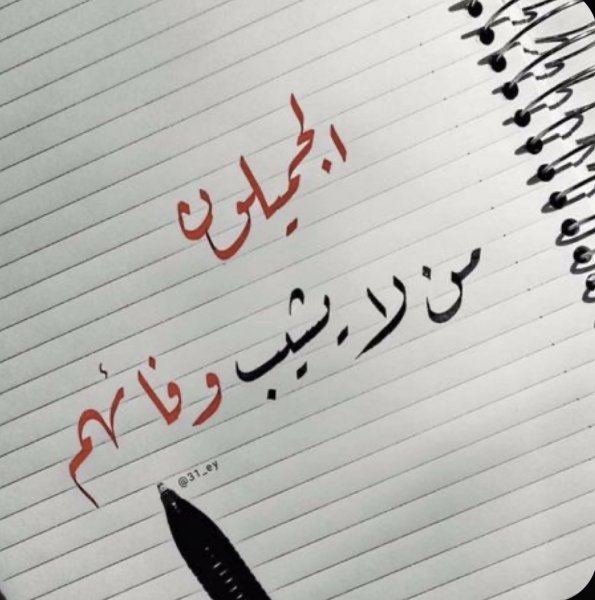 الجميلون
من لا يشيب وفائهم
@31_ey